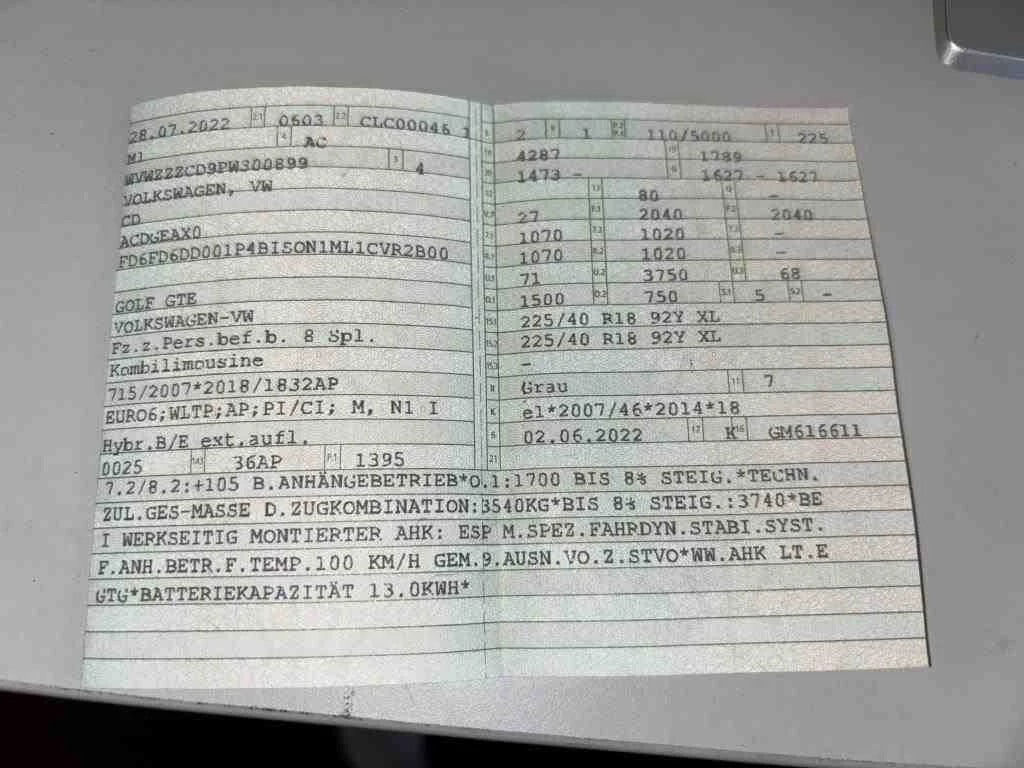 28.07.2022 2.1 0603 2.2 CLC00046 1
M1 4 AC
WVWZZZCD9PW300899 3 4
VOLKSWAGEN, VW
CD
ACDGEAX0
FD6FD6DD001P4BISON1ML1CVR2B00
GOLF GTE
VOLKSWAGEN-VW
Fz.z.Pers.bef.b. 8 Spl.
Kombilimousine
715/2007*2018/1832AP
EURO6;WLTP;AP;PI/CI; M, N1 I
Hybr.B/E ext.aufl.
0025 14.1 36AP P.1 1395
2 9 1 P.2 P.4 110/5000 T 225
18 4287 19 1789
20 1473 - G 1627 - 1627
12 13 80 Q -
27 F.1 2040 F.2 2040
7.1 1070 7.2 1020 7.3 -
8.1 1070 8.2 1020 8.3 -
U.1 71 U.2 3750 U.3 68
O.1 1500 O.2 750 S.1 5 S.2 -
15.1 225/40 R18 92Y XL
15.2 225/40 R18 92Y XL
15.3 -
R Grau 11 7
K e1*2007/46*2014*18
6 02.06.2022 17 K 16 GM616611
21
7.2/8.2:+105 B.ANHÄNGEBETRIEB*O.1:1700 BIS 8% STEIG.*TECHN.
ZUL.GES-MASSE D.ZUGKOMBINATION:3540KG*BIS 8% STEIG.:3740*BE
I WERKSEITIG MONTIERTER AHK: ESP M.SPEZ.FAHRDYN.STABI.SYST.
F.ANH.BETR.F.TEMP.100 KM/H GEM.9.AUSN.VO.Z.STVO*WW.AHK LT.E
GTG*BATTERIEKAPAZITÄT 13.0KWH*